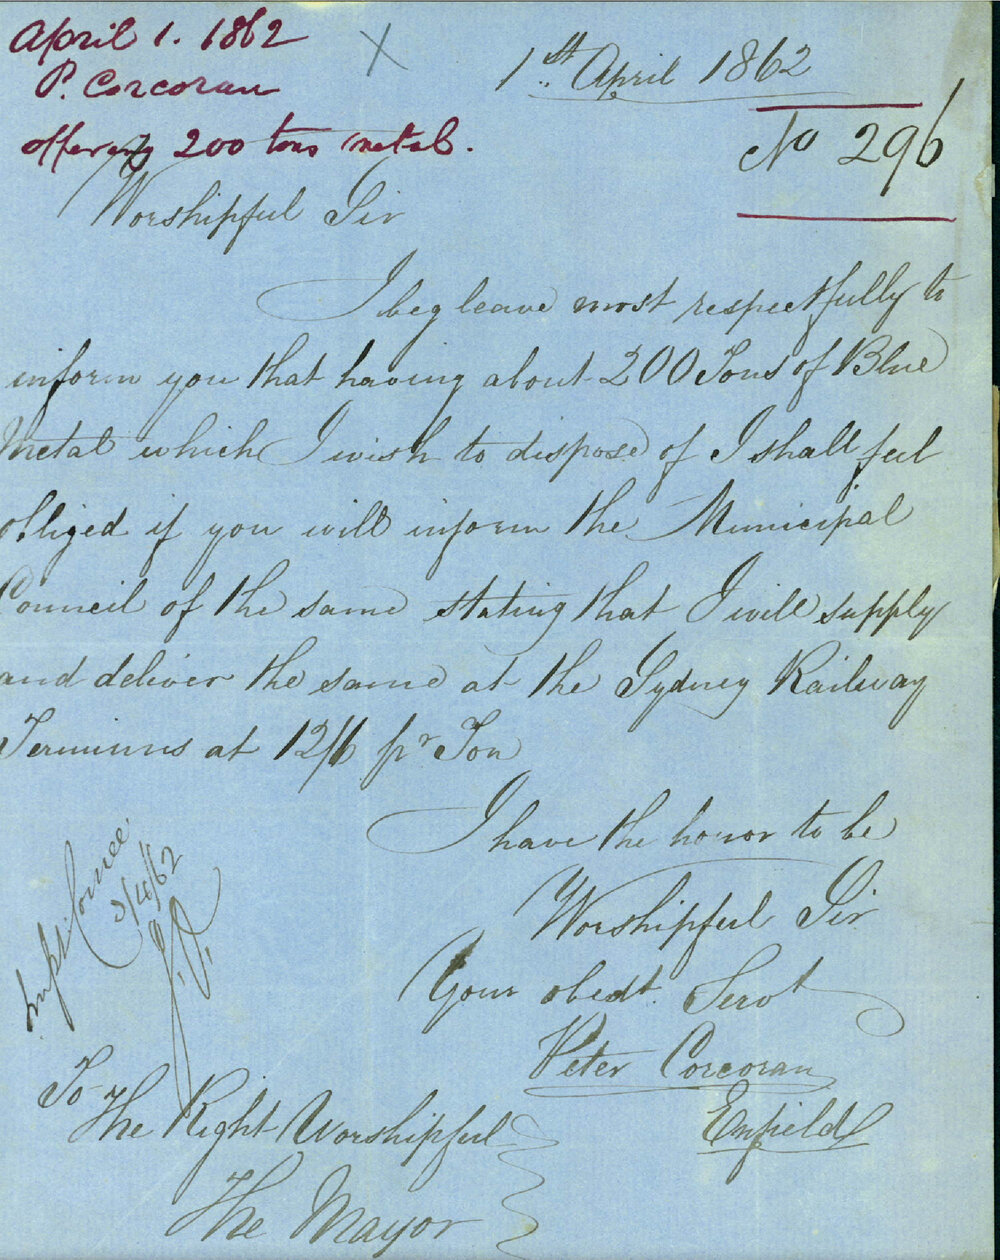 April 1. 1862
P. Corcoran
offering 200 tons metal.
X
1st April 1862
No 296
Worshipful Sir
I beg leave most respectfully to
inform you that having about 200 Tons of Blue
Metal which I wish to dispose of I shall feel
obliged if you will inform the Municipal
Council of the same stating that I will supply
and deliver the same at the Sydney Railway
Terminus at 12/6 pr Ton
I have the honor to be
Worshipful Sir
Your obedt. Servt
Peter Corcoran
Enfield
Impt Comee
To
The Right Worshipful
The Mayor